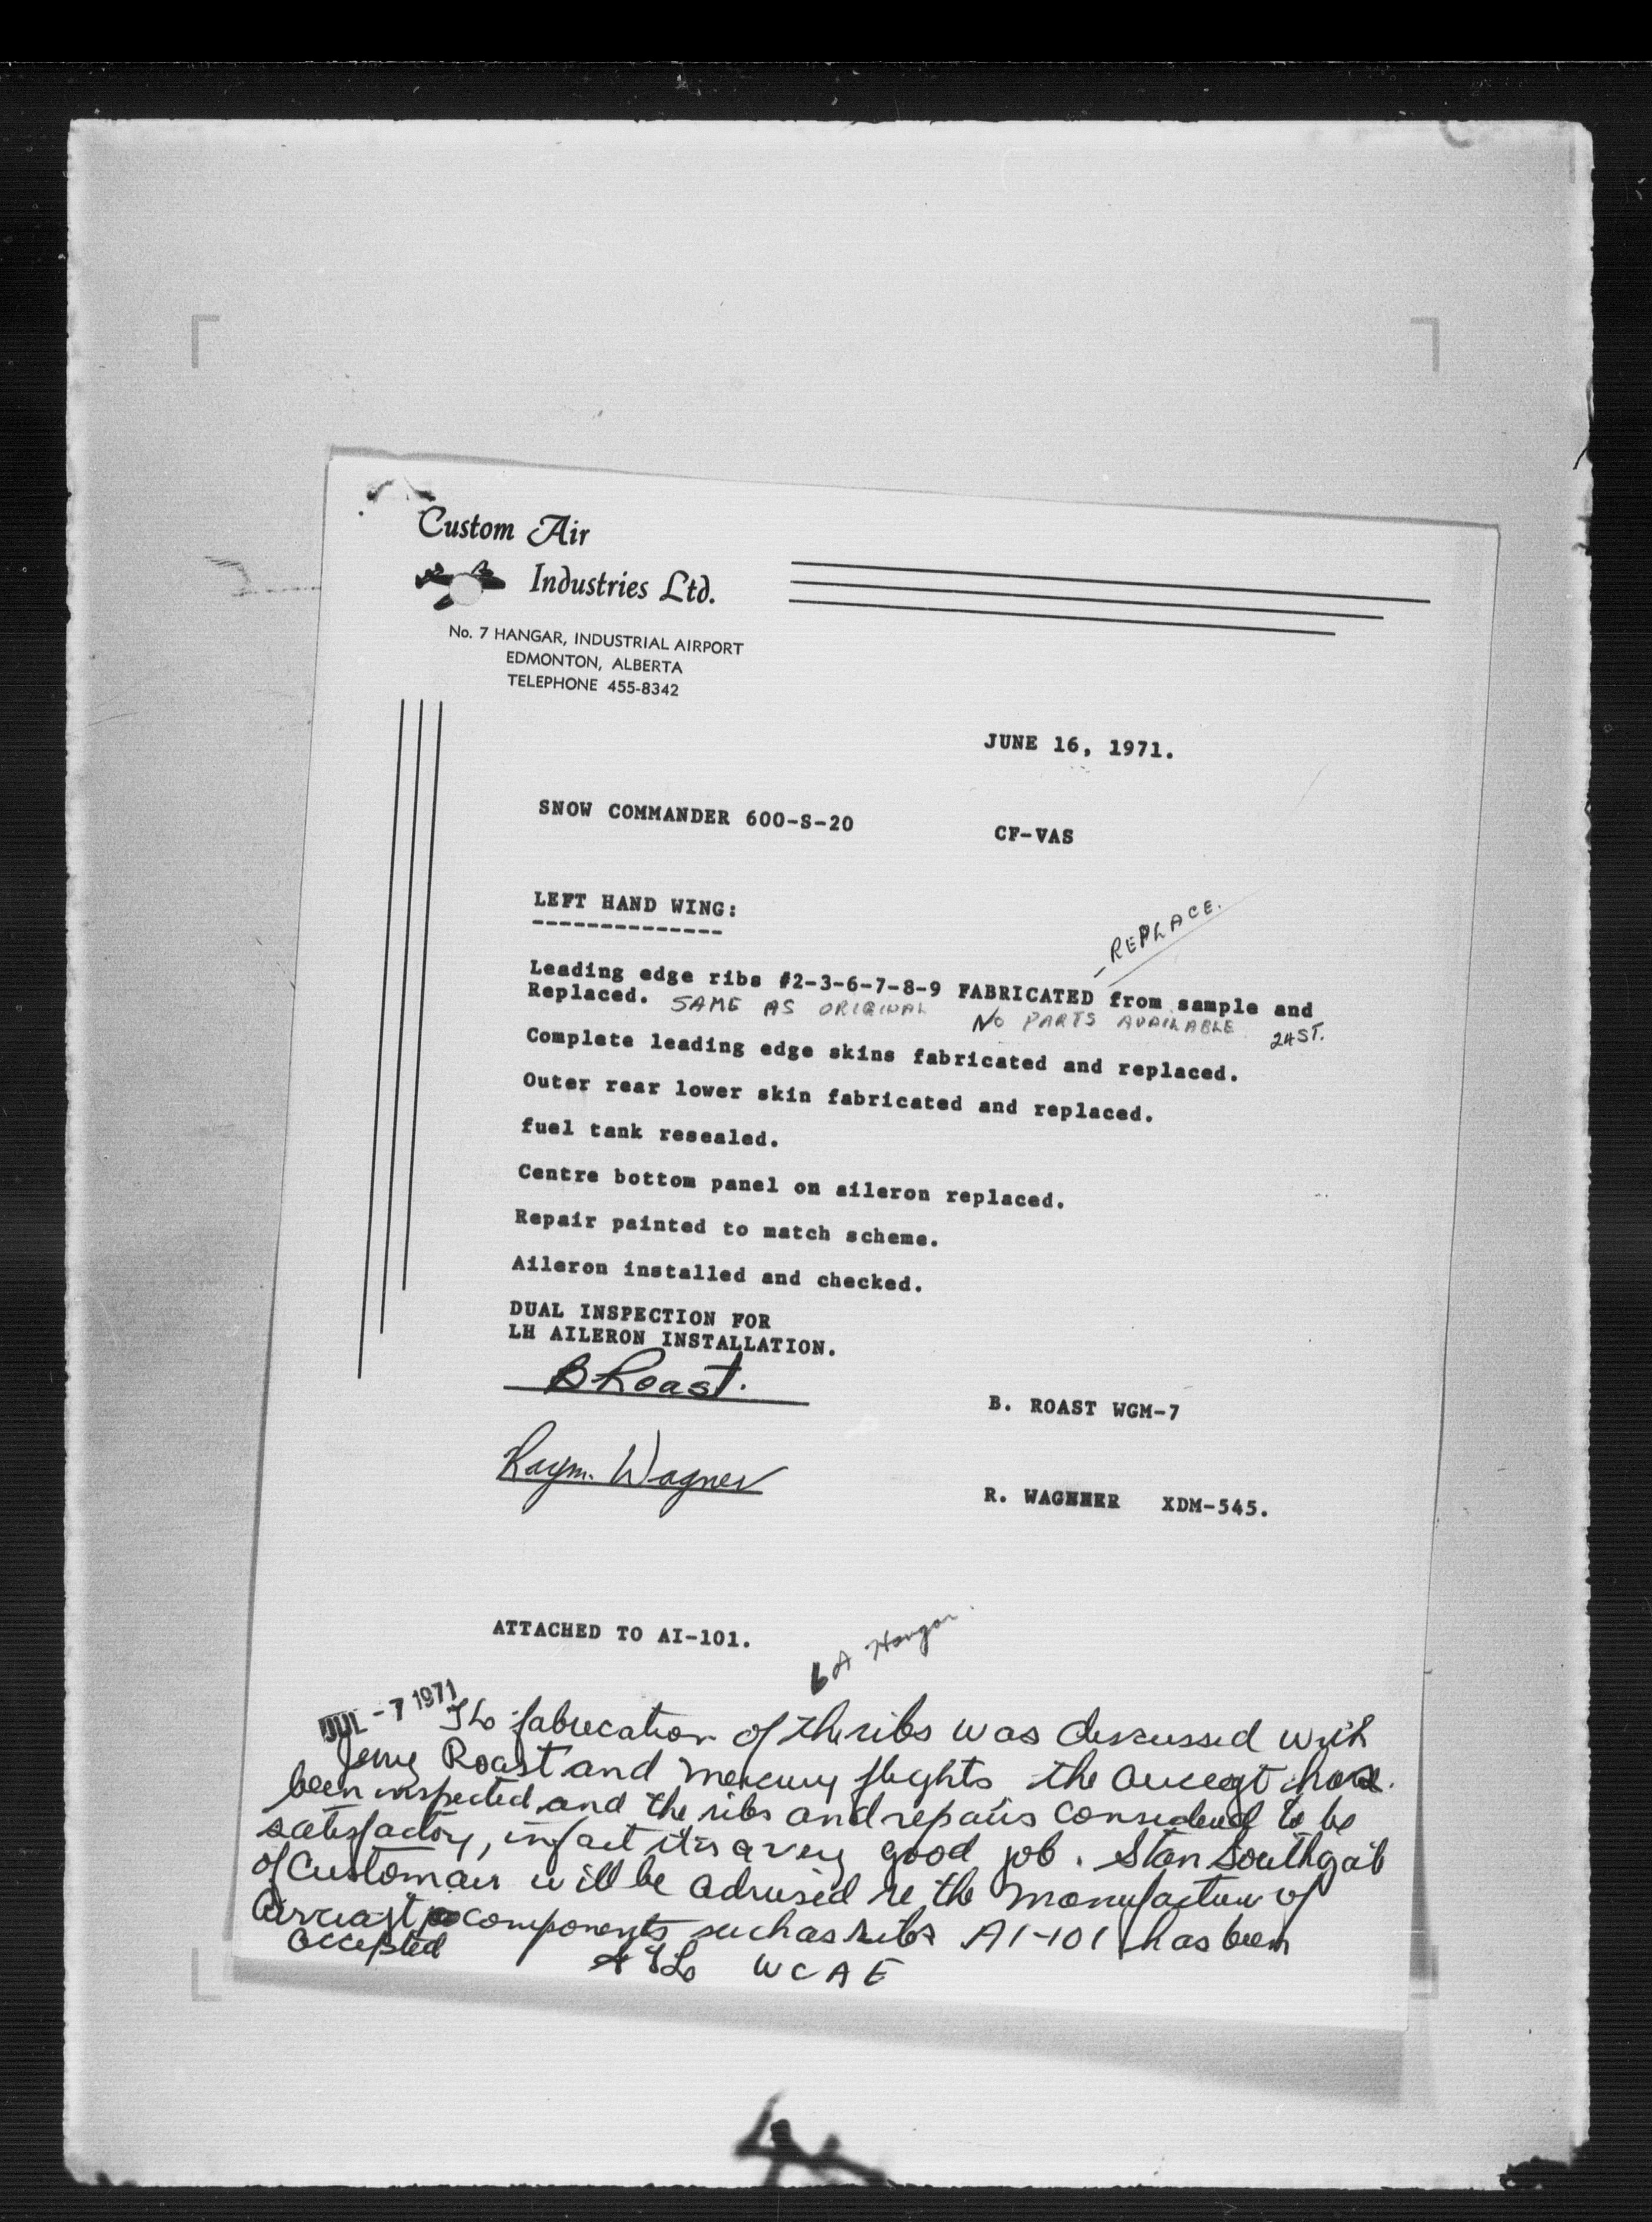 Custom Air
Industries Ltd.
No. 7 HANGAR, INDUSTRIAL AIRPORT
EDMONTON, ALBERTA
TELEPHONE 455-8342
JUNE 16, 1971.
SNOW COMMANDER 600-S-20 CF-VAS
LEFT HAND WING:
--------------
REPLACE.
Leading edge ribs #2-3-6-7-8-9 FABRICATED from sample and
Replaced. SAME AS ORIGINAL NO PARTS AVAILABLE 24ST.
Complete leading edge skins fabricated and replaced.
Outer rear lower skin fabricated and replaced.
fuel tank resealed.
Centre bottom panel on aileron replaced.
Repair painted to match scheme.
Aileron installed and checked.
DUAL INSPECTION FOR
LH AILERON INSTALLATION.
B Roast.
B. ROAST WGM-7
Raym. Wagner
R. WAGNNER XDM-545.
ATTACHED TO AI-101.
6A Hangar.
JUL -7 1971
The fabrication of the ribs was discussed with
Roast and Mercury flights the aircraft has
been inspected and the ribs and repairs considered to be
satisfactory, in fact it is a very good job. Stan Southgate
of Custom air will be advised re the manufacture of
Aircraft components such as ribs AI-101 has been
accepted
WCAE